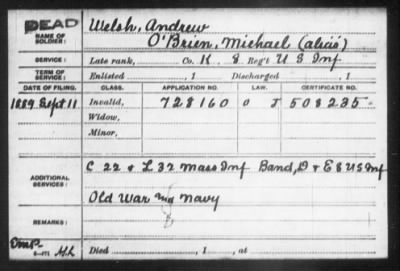 DEAD
NAME OF SOLDIER: Welsh, Andrew
O'Brien, Michael (alias)
SERVICE: Late rank, Co. K 8 Reg't U S Inf
TERM OF SERVICE: Enlisted , 1 Discharged , 1
DATE OF FILING. CLASS. APPLICATION NO. LAW. CERTIFICATE NO.
1889 Sept 11 Invalid, 728160 O J 508235
Widow,
Minor,
ADDITIONAL SERVICES: C 22 & L 32 Mass Inf Band, D & E 8 U S Inf
Old War Navy
REMARKS:
Died , 1 , at